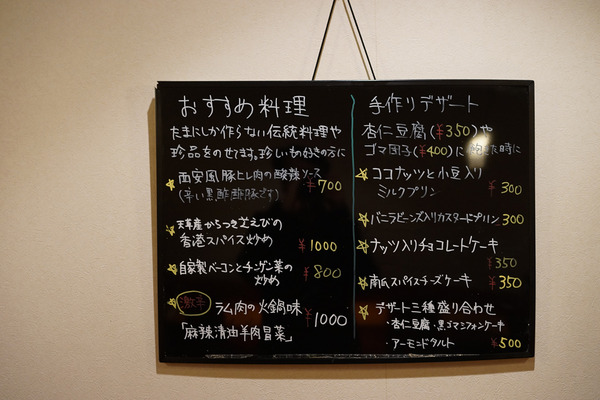 おすすめ料理
たまにしか作らない伝統料理や
珍品をのせてます。珍しいもの好きの方に
西安風豚ヒレ肉の酸辣ソース
(辛い黒酢酢豚です) ¥700
天草産からつきエビの
香港スパイス炒め ¥1000
自家製ベーコンとチンゲン菜の
炒め ¥800
激辛 ラム肉の火鍋味
「麻辣清油羊肉冒菜」 ¥1000
手作りデザート
杏仁豆腐(¥350)や
ゴマ団子(¥400)に飽きた時に
ココナッツと小豆入り
ミルクプリン ¥300
バニラビーンズ入りカスタードプリン 300
ナッツ入りチョコレートケーキ
¥350
スパイスチーズケーキ ¥350
デザート三種盛り合わせ
・杏仁豆腐・黒ゴマシフォンケーキ
・アーモンドタルト ¥500